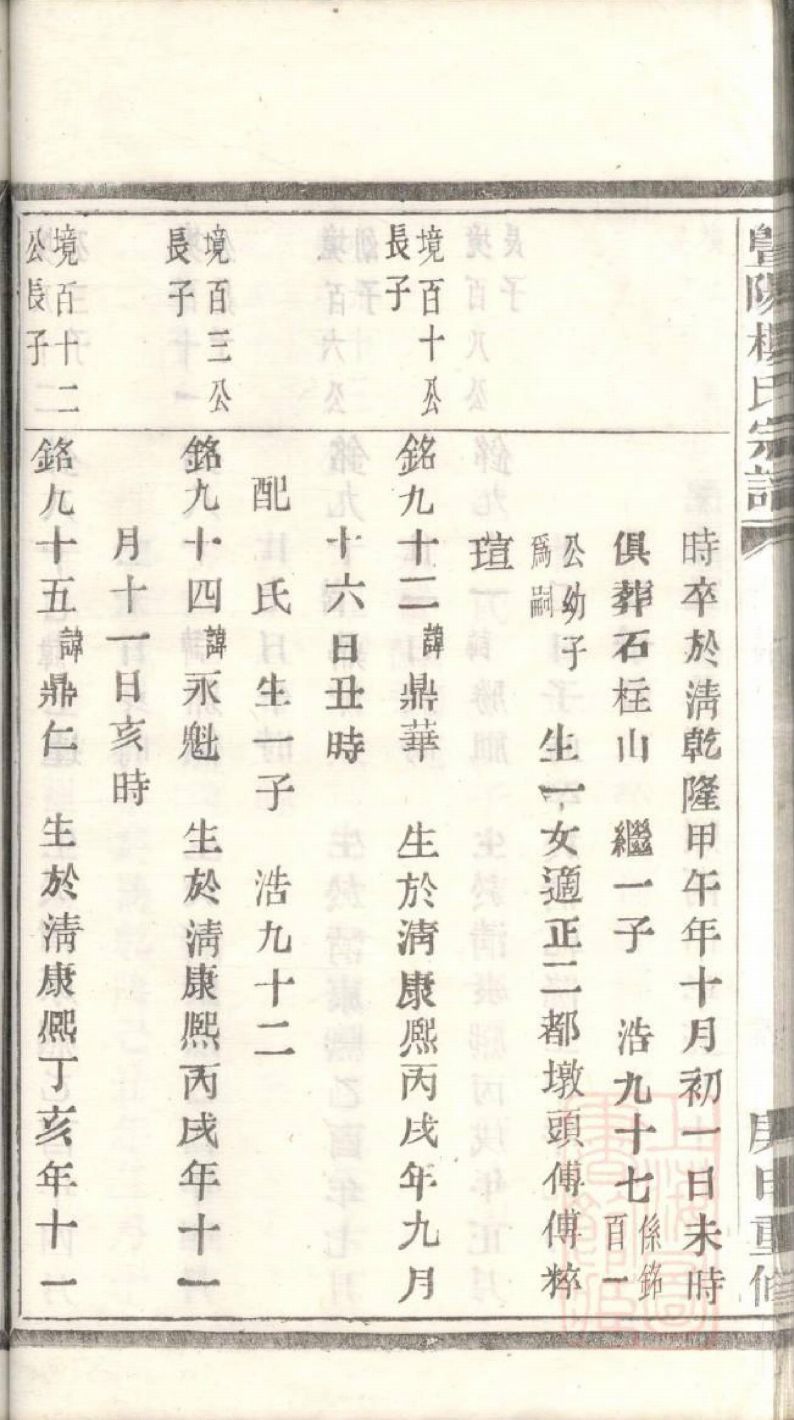 暨陽楊氏宗譜 庚申重修
時卒於清乾隆甲午年十月初一日未時
俱葬石柱山 繼一子 浩九十七係銘百一
公幼子爲嗣 生一女適正二都墩頭傅傅粹
瑄
境百十公
長子
銘九十二諱鼎華 生於清康熙丙戌年九月
十六日丑時
配 氏 生一子 浩九十二
境百三公
長子
銘九十四諱永魁 生於清康熙丙戌年十一
月十一日亥時
境百十二
公長子
銘九十五諱鼎仁 生於清康熙丁亥年十一